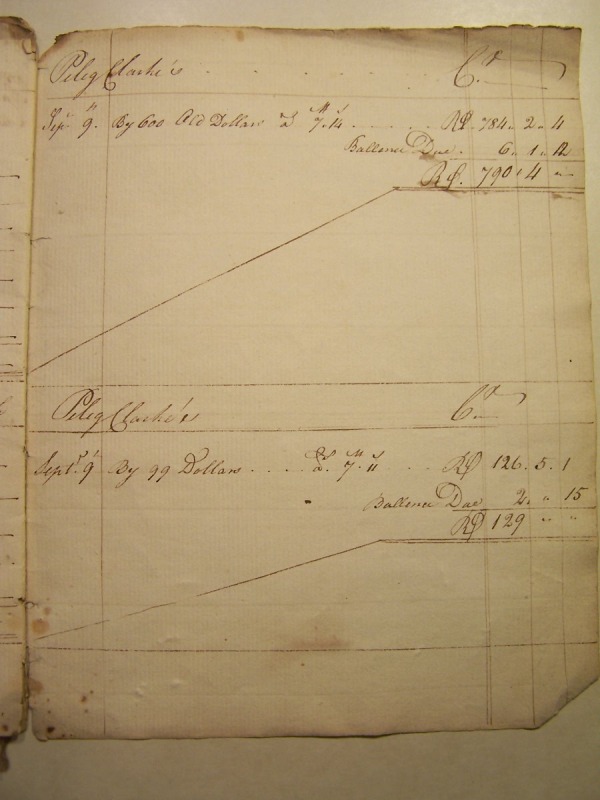 Peleg Clarke's . . . . . . Cr
Sepr 9. By 600 Old Dollars a 7.14 . . . . . R$ 784. 2. 4
Ballence Due . 6. 1. 12
R$. 790. 4 "
Peleg Clarke's Cr
Sept. 9 By 99 Dollars . . . . a 7. 11 . . . R$ 126. 5. 1
Ballence Due 2. " 15
R$ 129 " "